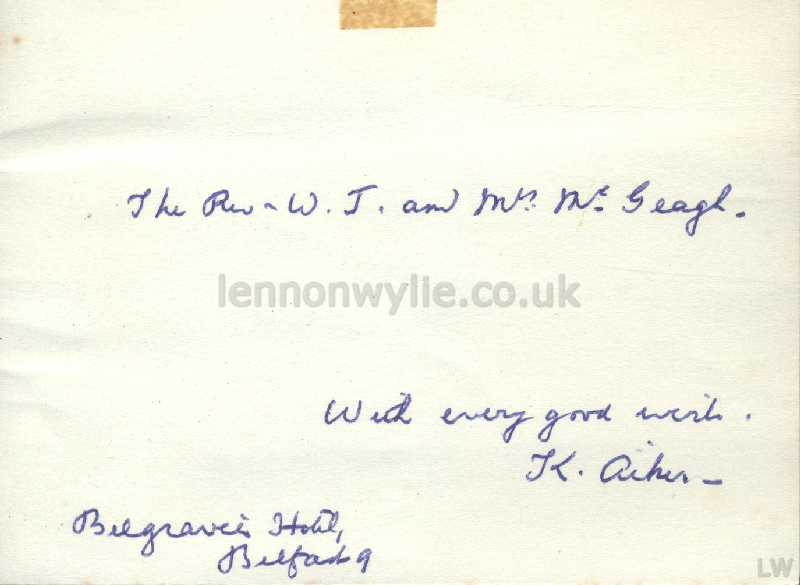 The Rev. W. J. and Mrs. Mc. Geagh.
lennonwylie.co.uk
With every good wish.
K.
Belgravia Hotel,
Belfast 9
LW